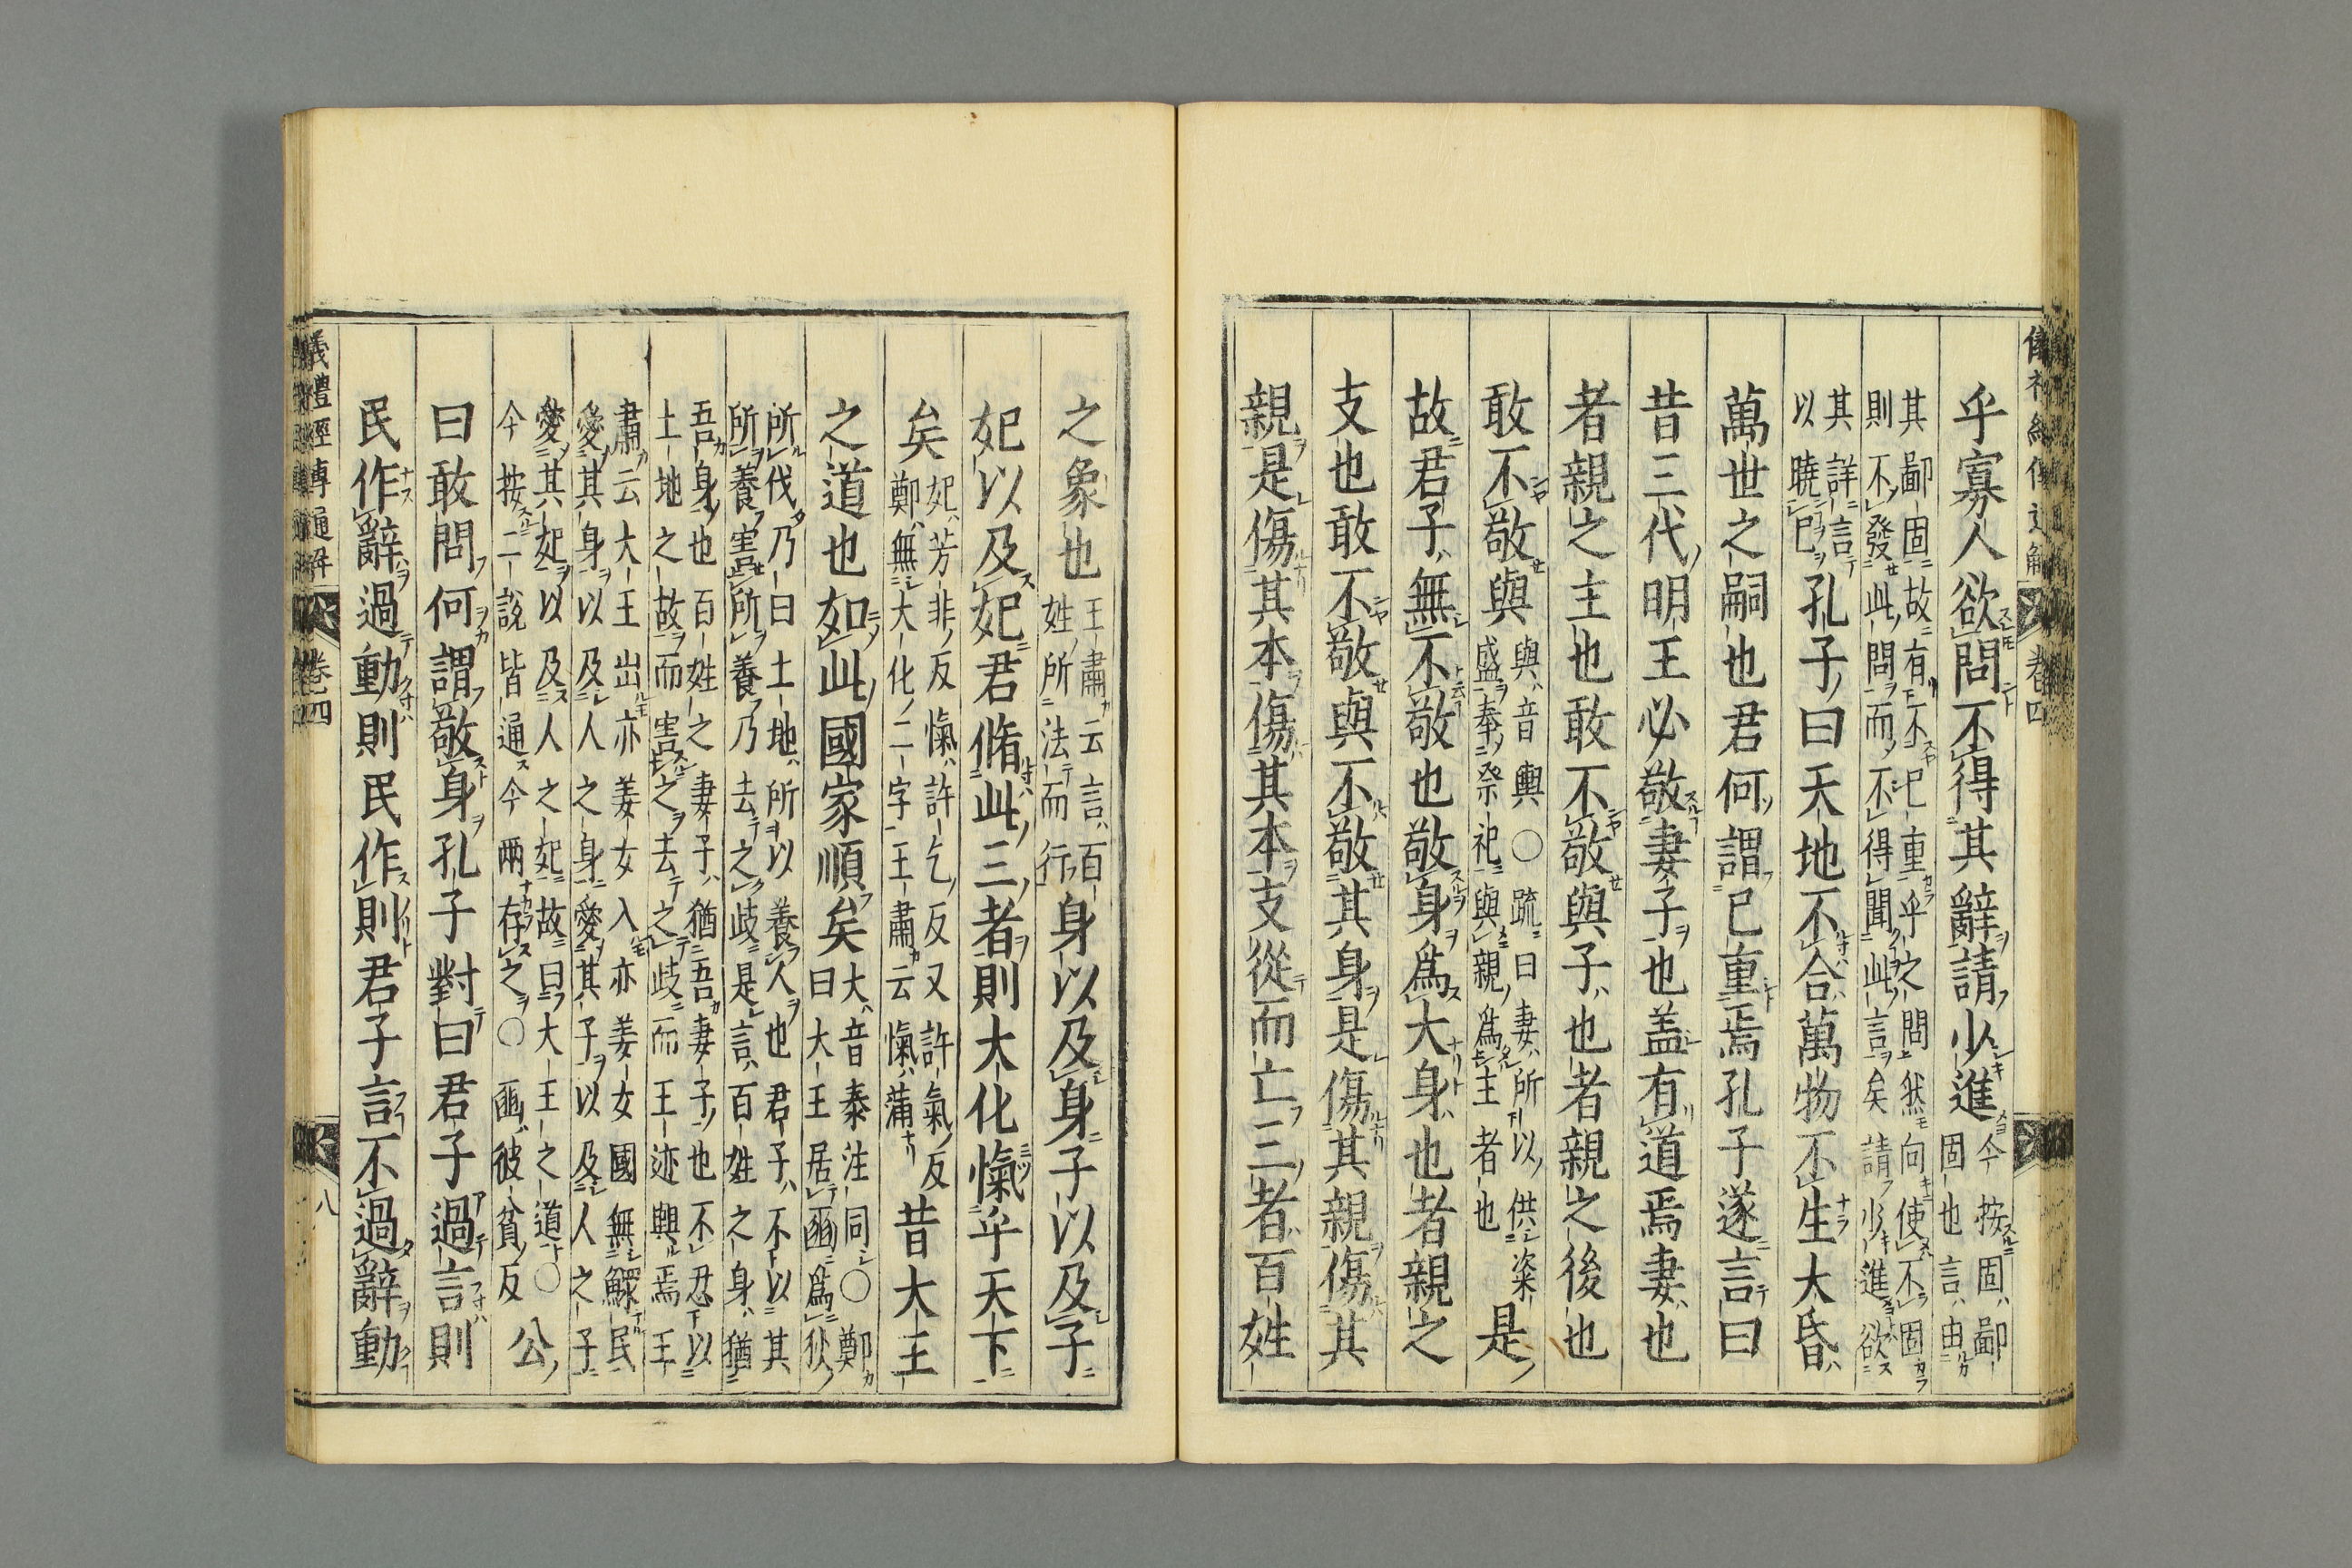 乎寡人欲問不得其辭請少進今按固鄙固也言由
其鄙固故有不已重乎之問然向使不固
則不發此問而不得聞此言矣請少進欲
其詳言
以曉已孔子曰天地不合萬物不生大昏
萬世之嗣也君何謂已重焉孔子遂言曰
昔三代明王必敬妻子也盖有道焉妻也
者親之主也敢不敬與子也者親之後也
敢不敬與與音輿○疏曰妻所以供粢盛奉祭祀與親爲主者也是
故君子無不敬也敬身爲大身也者親之
支也敢不敬與不敬其身是傷其親傷其
親是傷其本傷其本支從而亡三者百姓
之象也王肅云言百姓所法而行身以及身子以及子
妃以及妃君脩此三者則大化愾乎天下
矣妃芳非反愾許乞反又許氣反鄭無大化二字王肅云愾蒲昔大王
之道也如此國家順矣大音泰注同○鄭曰大王居豳爲狄
所伐乃曰土地所以養人也君子不以其
所養害所養乃去之歧是言百姓之身猶
吾身也百姓之妻子猶吾妻子也不忍以
土地之故而害之去之歧而王迹興焉王
肅云大王出亦姜女入亦姜女國無鰥民
愛其身以及人之身愛其子以及人之子
愛其妃以及人之妃故曰大王之道○
今按二說皆通今兩存之○豳彼貧反公
曰敢問何謂敬身孔子對曰君子過言則
民作辭過動則民作則君子言不過辭動
儀禮經傳通解 卷四 八